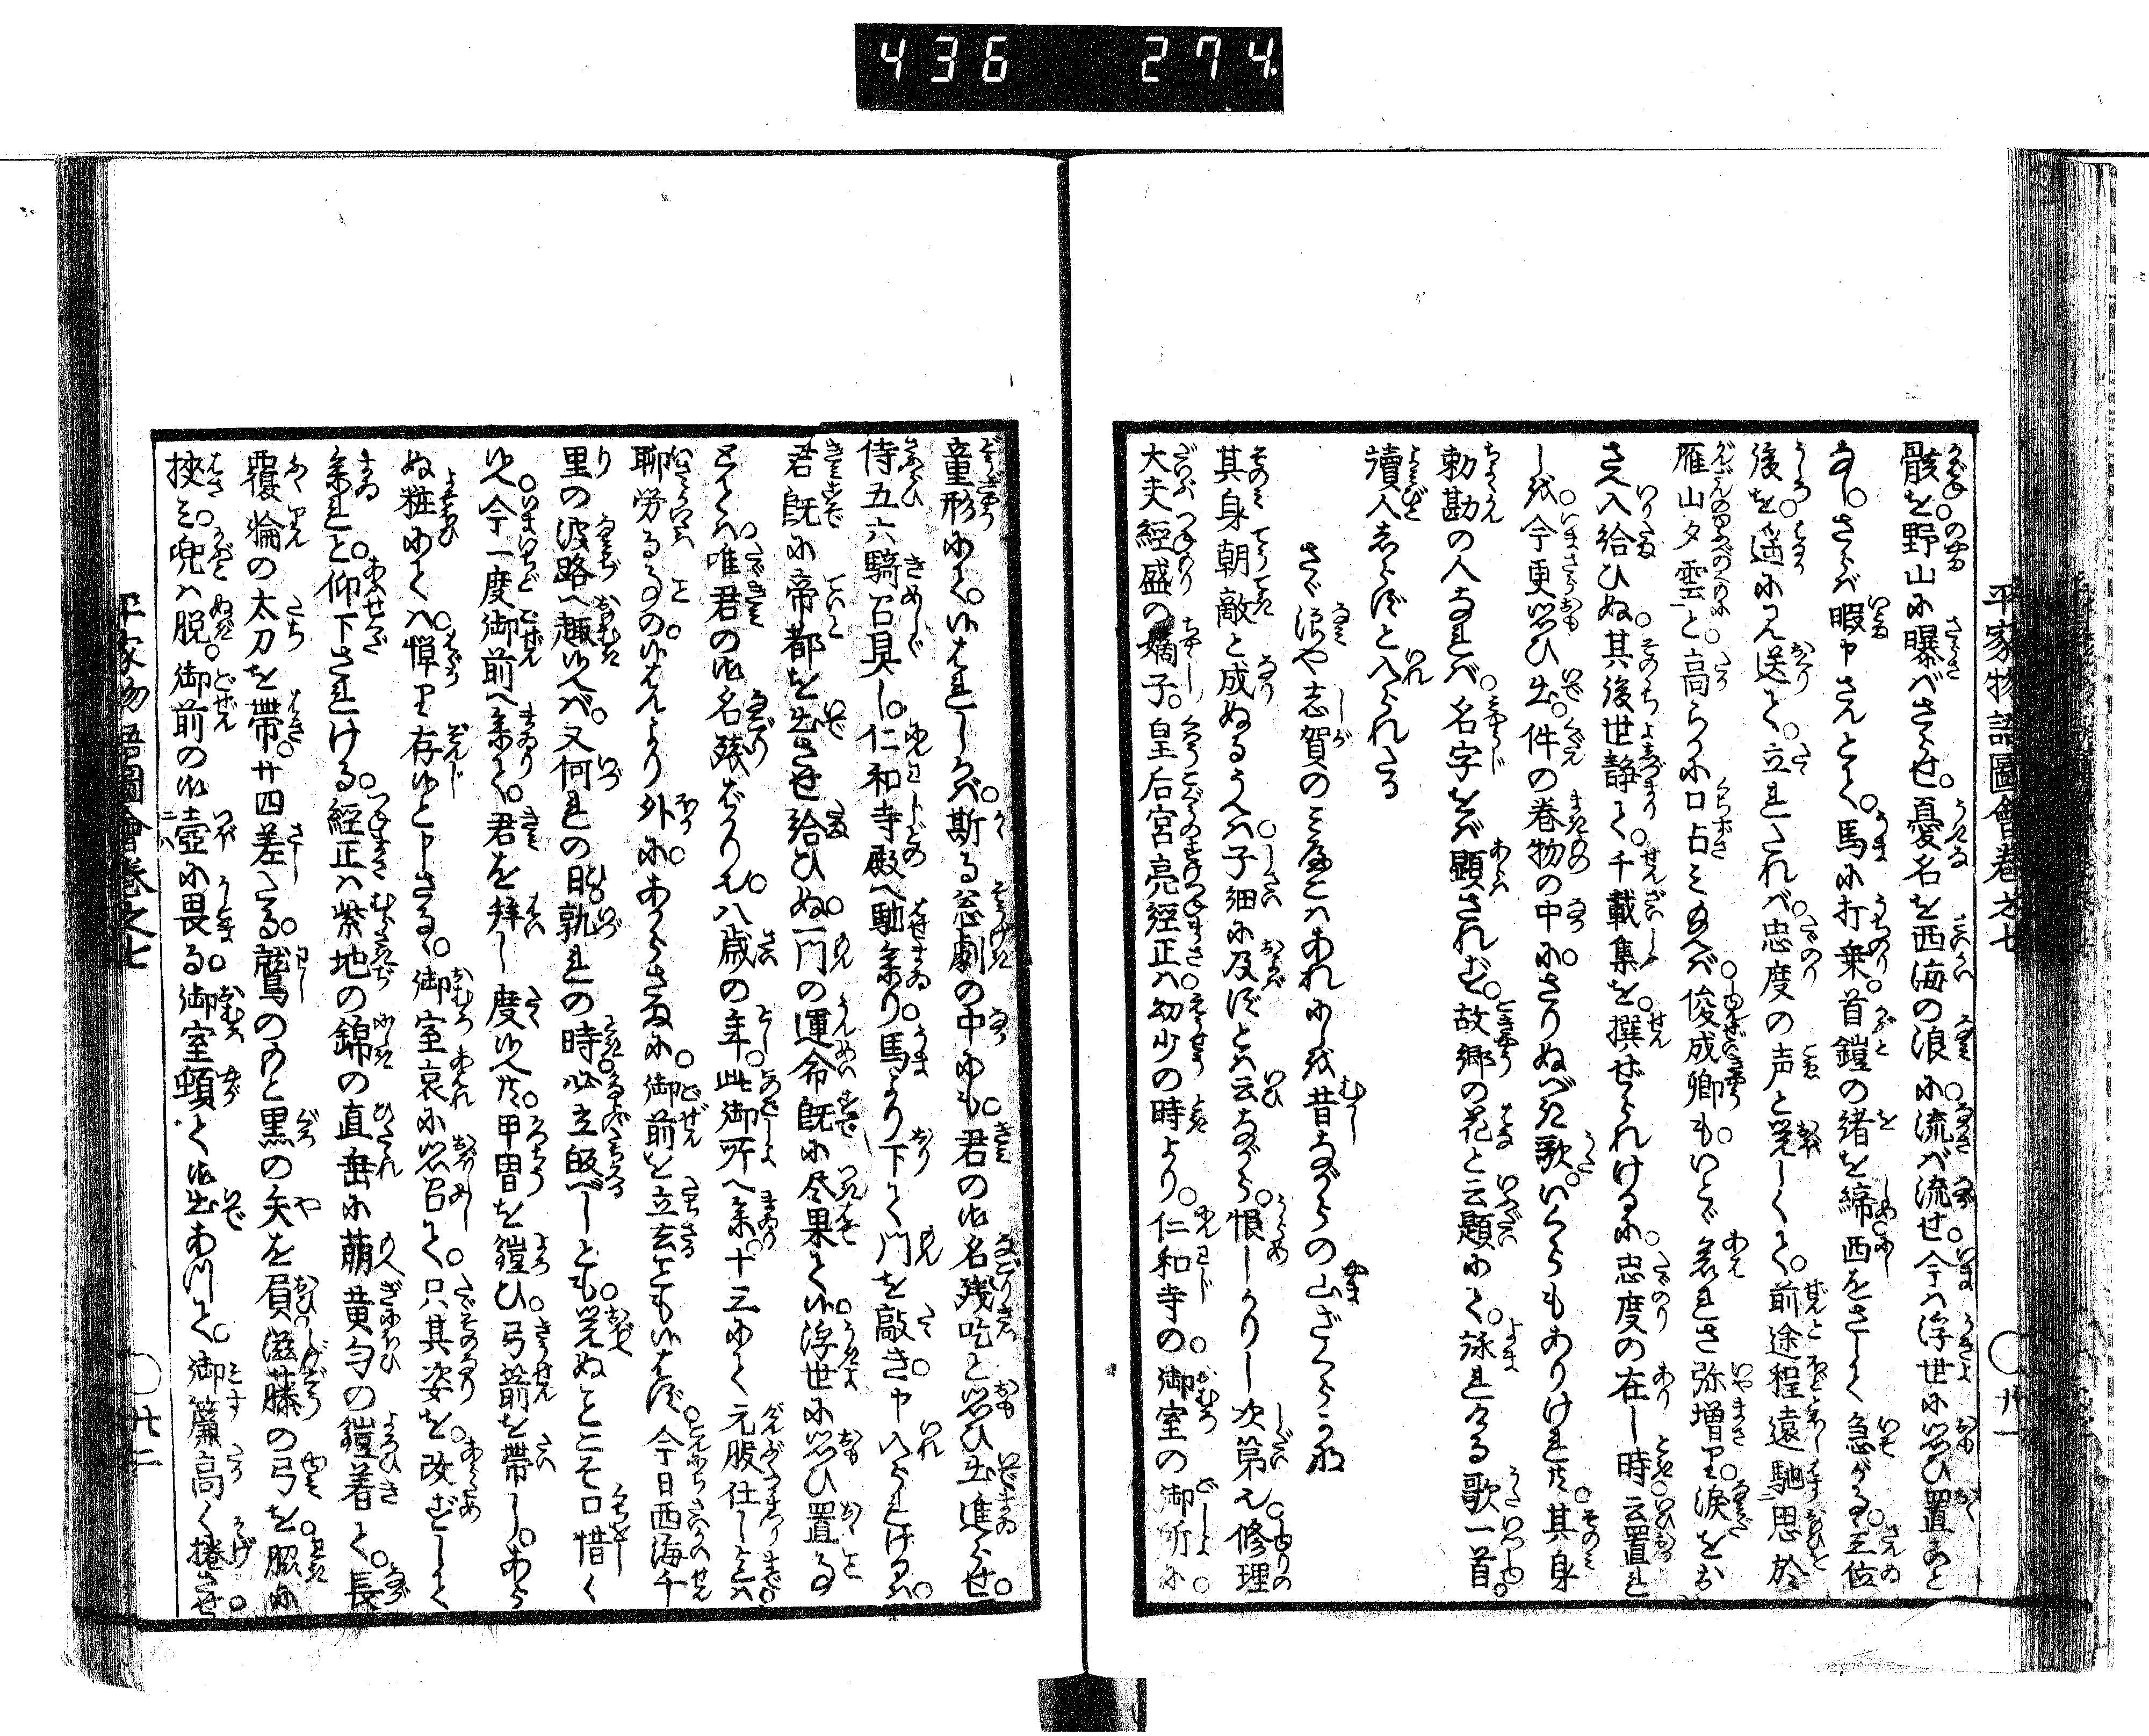 436 274
平家物語圖會卷之七 ○廿一
骸を野山に曝べさらせ。憂名を西海の浪に流べ流せ今ハ浮世に思ひ置こと
なし。さらバ暇申さんとて。馬に打乗。首鎧の緒を締西をさして急がる。三位
後を遥に見送て。立れされバ忠度の声と覚しくて。前途程遠馳思於
雁山夕雲と。高らかに口占ミ給へバ俊成卿も。いとゞ哀れさ弥増り涙をお
さえ入給ひぬ。其後世静て。千載集を撰ぜられけるに。忠度の在し時云置れ
し。今更思ひ出。件の巻物の中に。さりぬべき歌。いくらもありけれ共。其身
勅勘の人なれバ。名字をバ顕されず。故郷の花と云題にて。詠れける歌一首。
讀人志らずと入られたる
さゞ浪や志賀のミやこハあれにしを昔ながらの山ざくらかな
其身朝敵と成ぬるうへハ子細に及ずとハ云ながら。恨しかりし次第也。修理
大夫經盛の嫡子。皇后宮亮經正ハ幼少の時より。仁和寺の御室の御所に
童形にて。候はれしかバ。斯る怱劇の中にも。君の御名残吃と思ひ出進らせ。
侍五六騎召具し。仁和寺殿へ馳參り。馬より下て門を敲き。申入られけるハ。
君既に帝都を出させ給ひぬ。一門の運命既に尽果て候。浮世に思ひ置る
こととハ唯君の御名残ばかり也。八歳の年。此御所へ參。十三にて元服仕しまでハ。
聊労るゝの候はんより外に。あからさまに。御前を立去ともいはず。今日西海千
里の波路へ趣候へバ。又何れの日孰れの時必立皈べしとも覚ぬとこそ口惜く
候へ今一度御前へ參て。君を拜し度候へ共。甲冑を鎧ひ弓箭を帶し。あら
ぬ粧にてハ。憚り存候と申さる。御室哀に思召て。只其姿を。改ずして
參れと仰下されける。經正ハ紫地の錦の直垂に萠黄匂の鎧着て。長
覆輪の太刀を帶。廿四差たる鷲の黒の矢を屓滋藤の弓を脇に
挾ミ。兜ハ脱。御前の御壺に畏る御室頓て御出あつて。御簾高く捲させ。
平家物語圖會卷之七 ○廿二